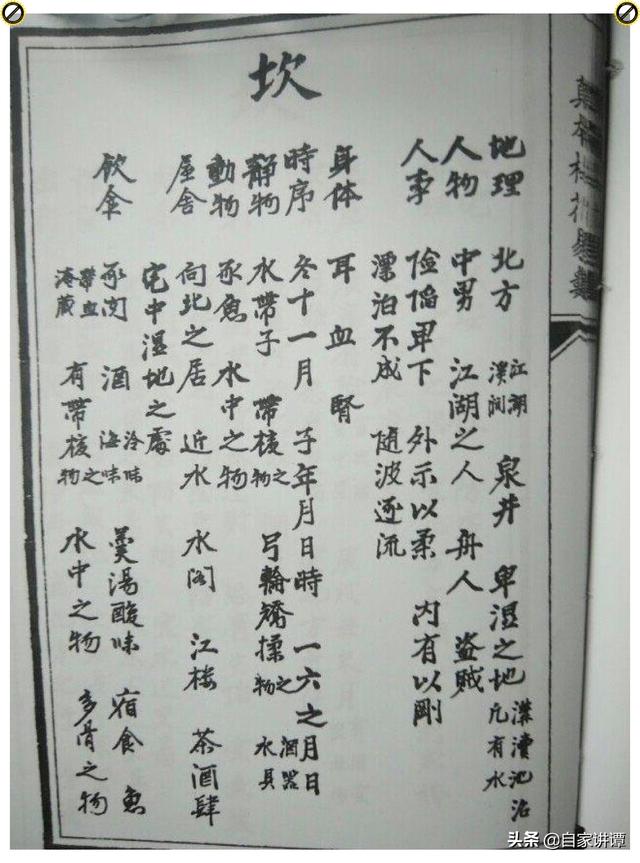 坎
地理 北方 江湖 溪澗 泉井 卑湿之地 溝瀆池沼 凡有水
人物 中男 江湖之人 舟人 盗賊
人事 险陷卑下 外示以柔 内有以剛
漂泊不成 随波逐流
身体 耳 血 腎
時序 冬十一月 子年月日時 一六之月日
静物 水帶子 帶核之物 弓輪矯揉之物 酒器 水具
動物 豕魚 水中之物
屋舍 向北之居 近水 水阁 江楼 茶酒肆
宅中湿地之處
飲食 豕肉 酒 冷味 海味 羹湯酸味 宿食 魚
帶血 淹藏 有帶核之物 水中之物 多骨之物
头条 @自家讲谭